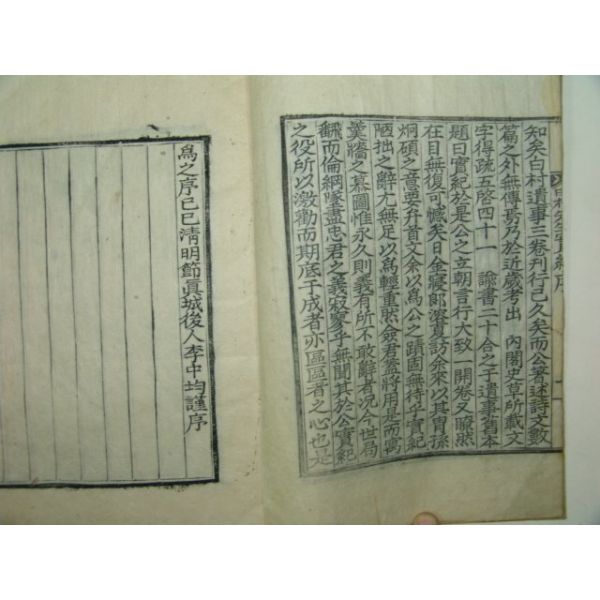 知矣白村遺事三卷刊行已久矣而公著述詩文數
篇之外無傳焉乃於近歲考出 內閣史草所載文
字得疏五啓四十一 諭書二十合之于遺事舊本
題曰實紀於是公之立朝言行大致一開卷又瞭然
在目無復可憾矣日金寢郞溶晝訪余來以其胄孫
炯碩之意要弁首文余以爲公之蹟固無待乎實紀
陋拙之辭尤無足以爲輕重然僉君蓋將用是而寓
羹牆之慕圖惟永久則義有所不敢辭者况今世局
飜而倫綱墜盡忠君之義寂寥乎無聞其於公實紀
之役所以激勸而期底于成者亦區區者之心也是
爲之序己巳淸明節眞城後人李中均謹序